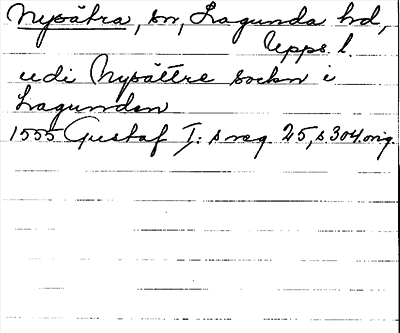 Nysätra, sn, Lagunda hd,
Upps. l.
udi Nysättre sockn i
Lagunden
1555 Gustaf I:s reg. 25, s. 304. orig.